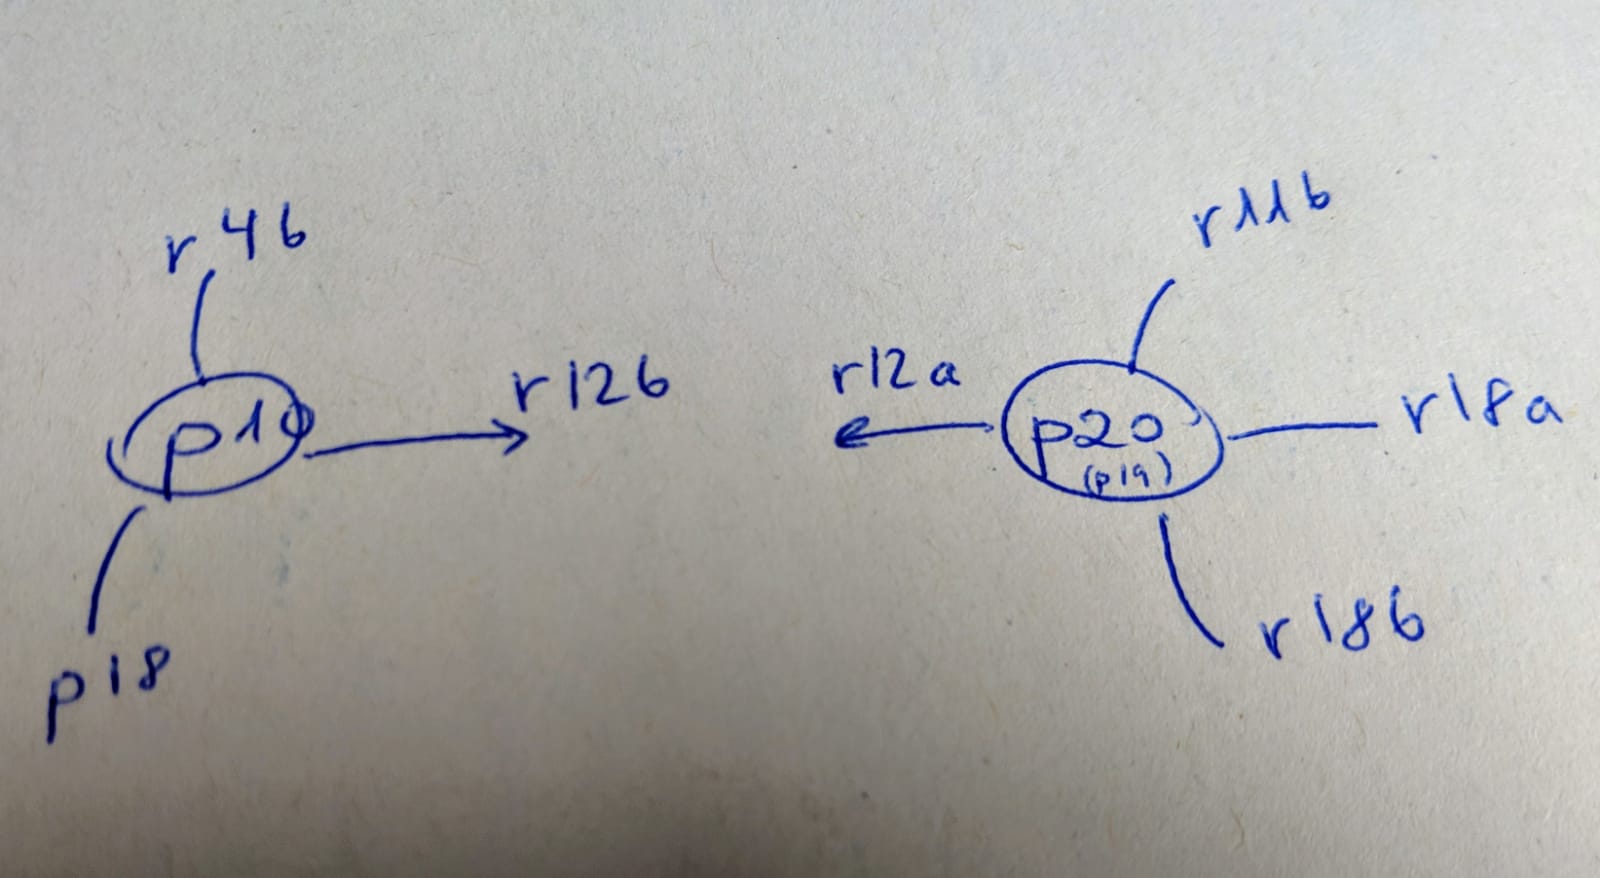 r4b
p10
r12b
p18
r11b
r12a
p20
(p19)
r18a
r18b